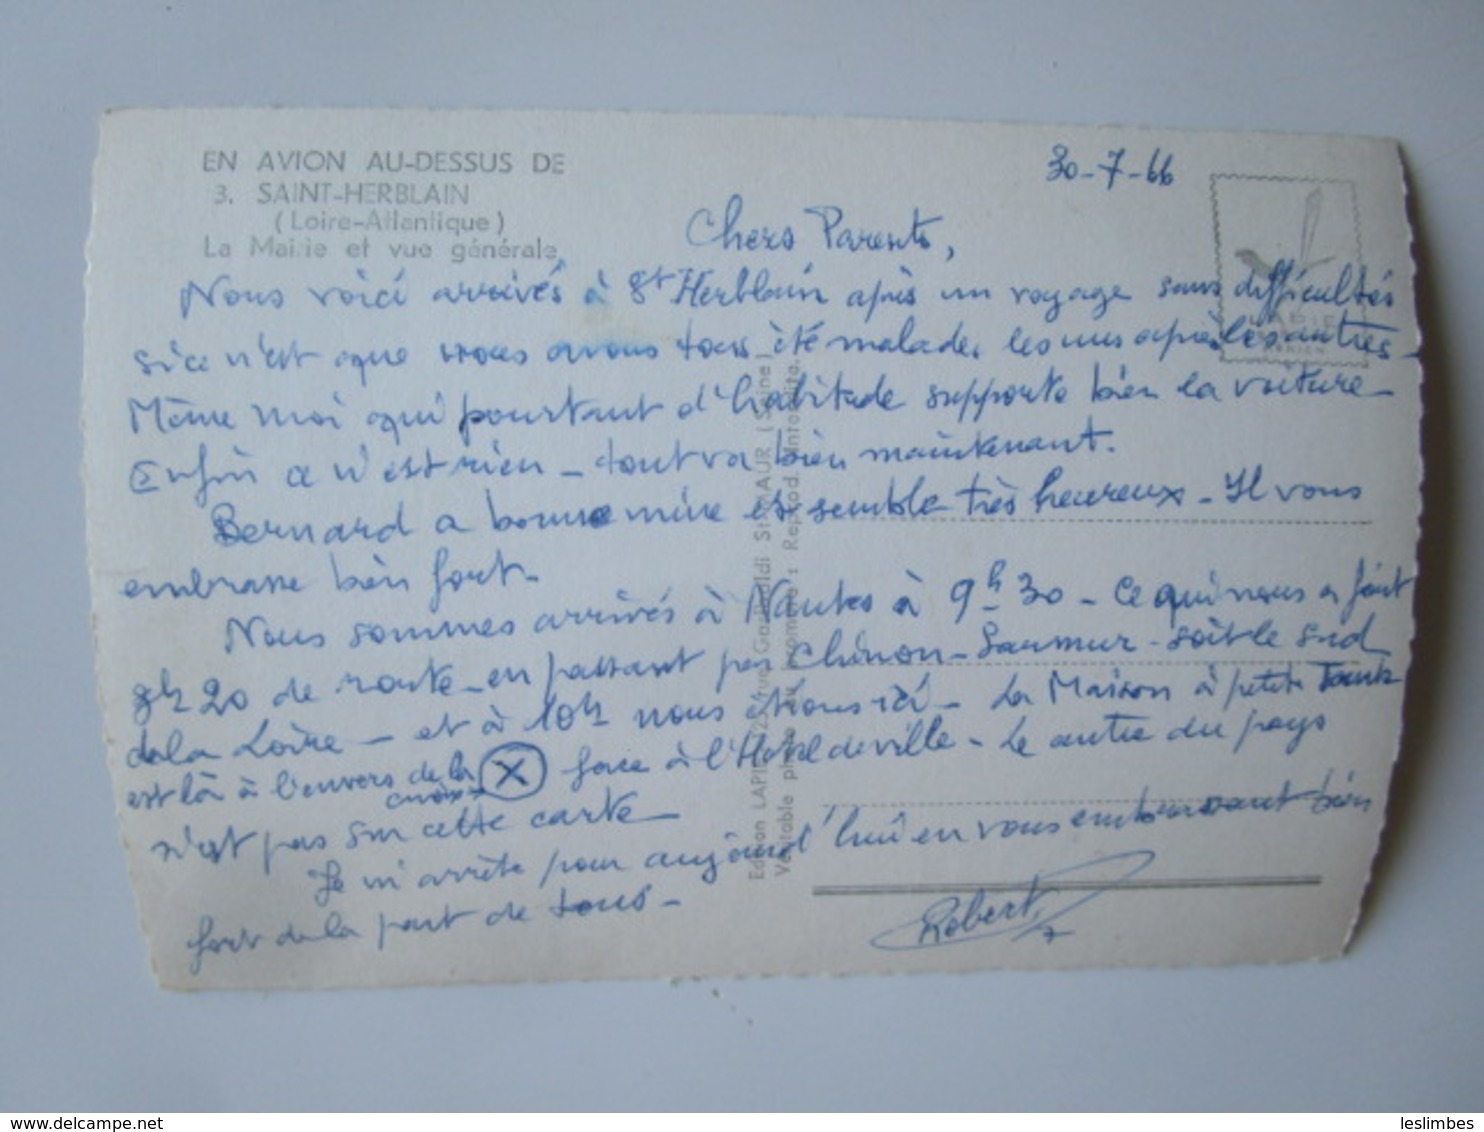 EN AVION AU-DESSUS DE
3. SAINT-HERBLAIN
(Loire-Atlantique)
La Mairie et vue générale
30-7-66
Chers Parents,
Nous voici arrivés à St Herblain après un voyage sans difficultés
si ce n'est que nous avons tous été malades les uns après les autres -
Même moi qui pourtant d'habitude supporte bien la voiture -
Enfin ce n'est rien - tout va bien maintenant.
Bernard a bonne mine et semble très heureux - Il vous
embrasse bien fort -
Nous sommes arrivés à Nantes à 9h30 - Ce qui nous a fait
20 de route - en passant par Chinon - Saumur - soit le sud
de la Loire - et à 10h nous étions ici - La Maison à petite
est là à l'envers de la
croix X face à l'Hotel de ville - Le centre du pays
n'est pas sur cette carte -
Je m'arrête pour aujourd'hui en vous embrassant bien
fort de la part de tous -
Robert
Edition LAPIE, rue Garibaldi St-MAUR (Seine)
Véritable photo au bromure : Reprod. Interdite
www.delcampe.net
leslimbes